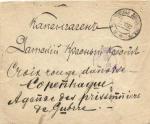 Копенгаген
Датскій Красный Крестъ
Croix rouge danoise
Copenhague
Agence des prisonniers
de Guerre